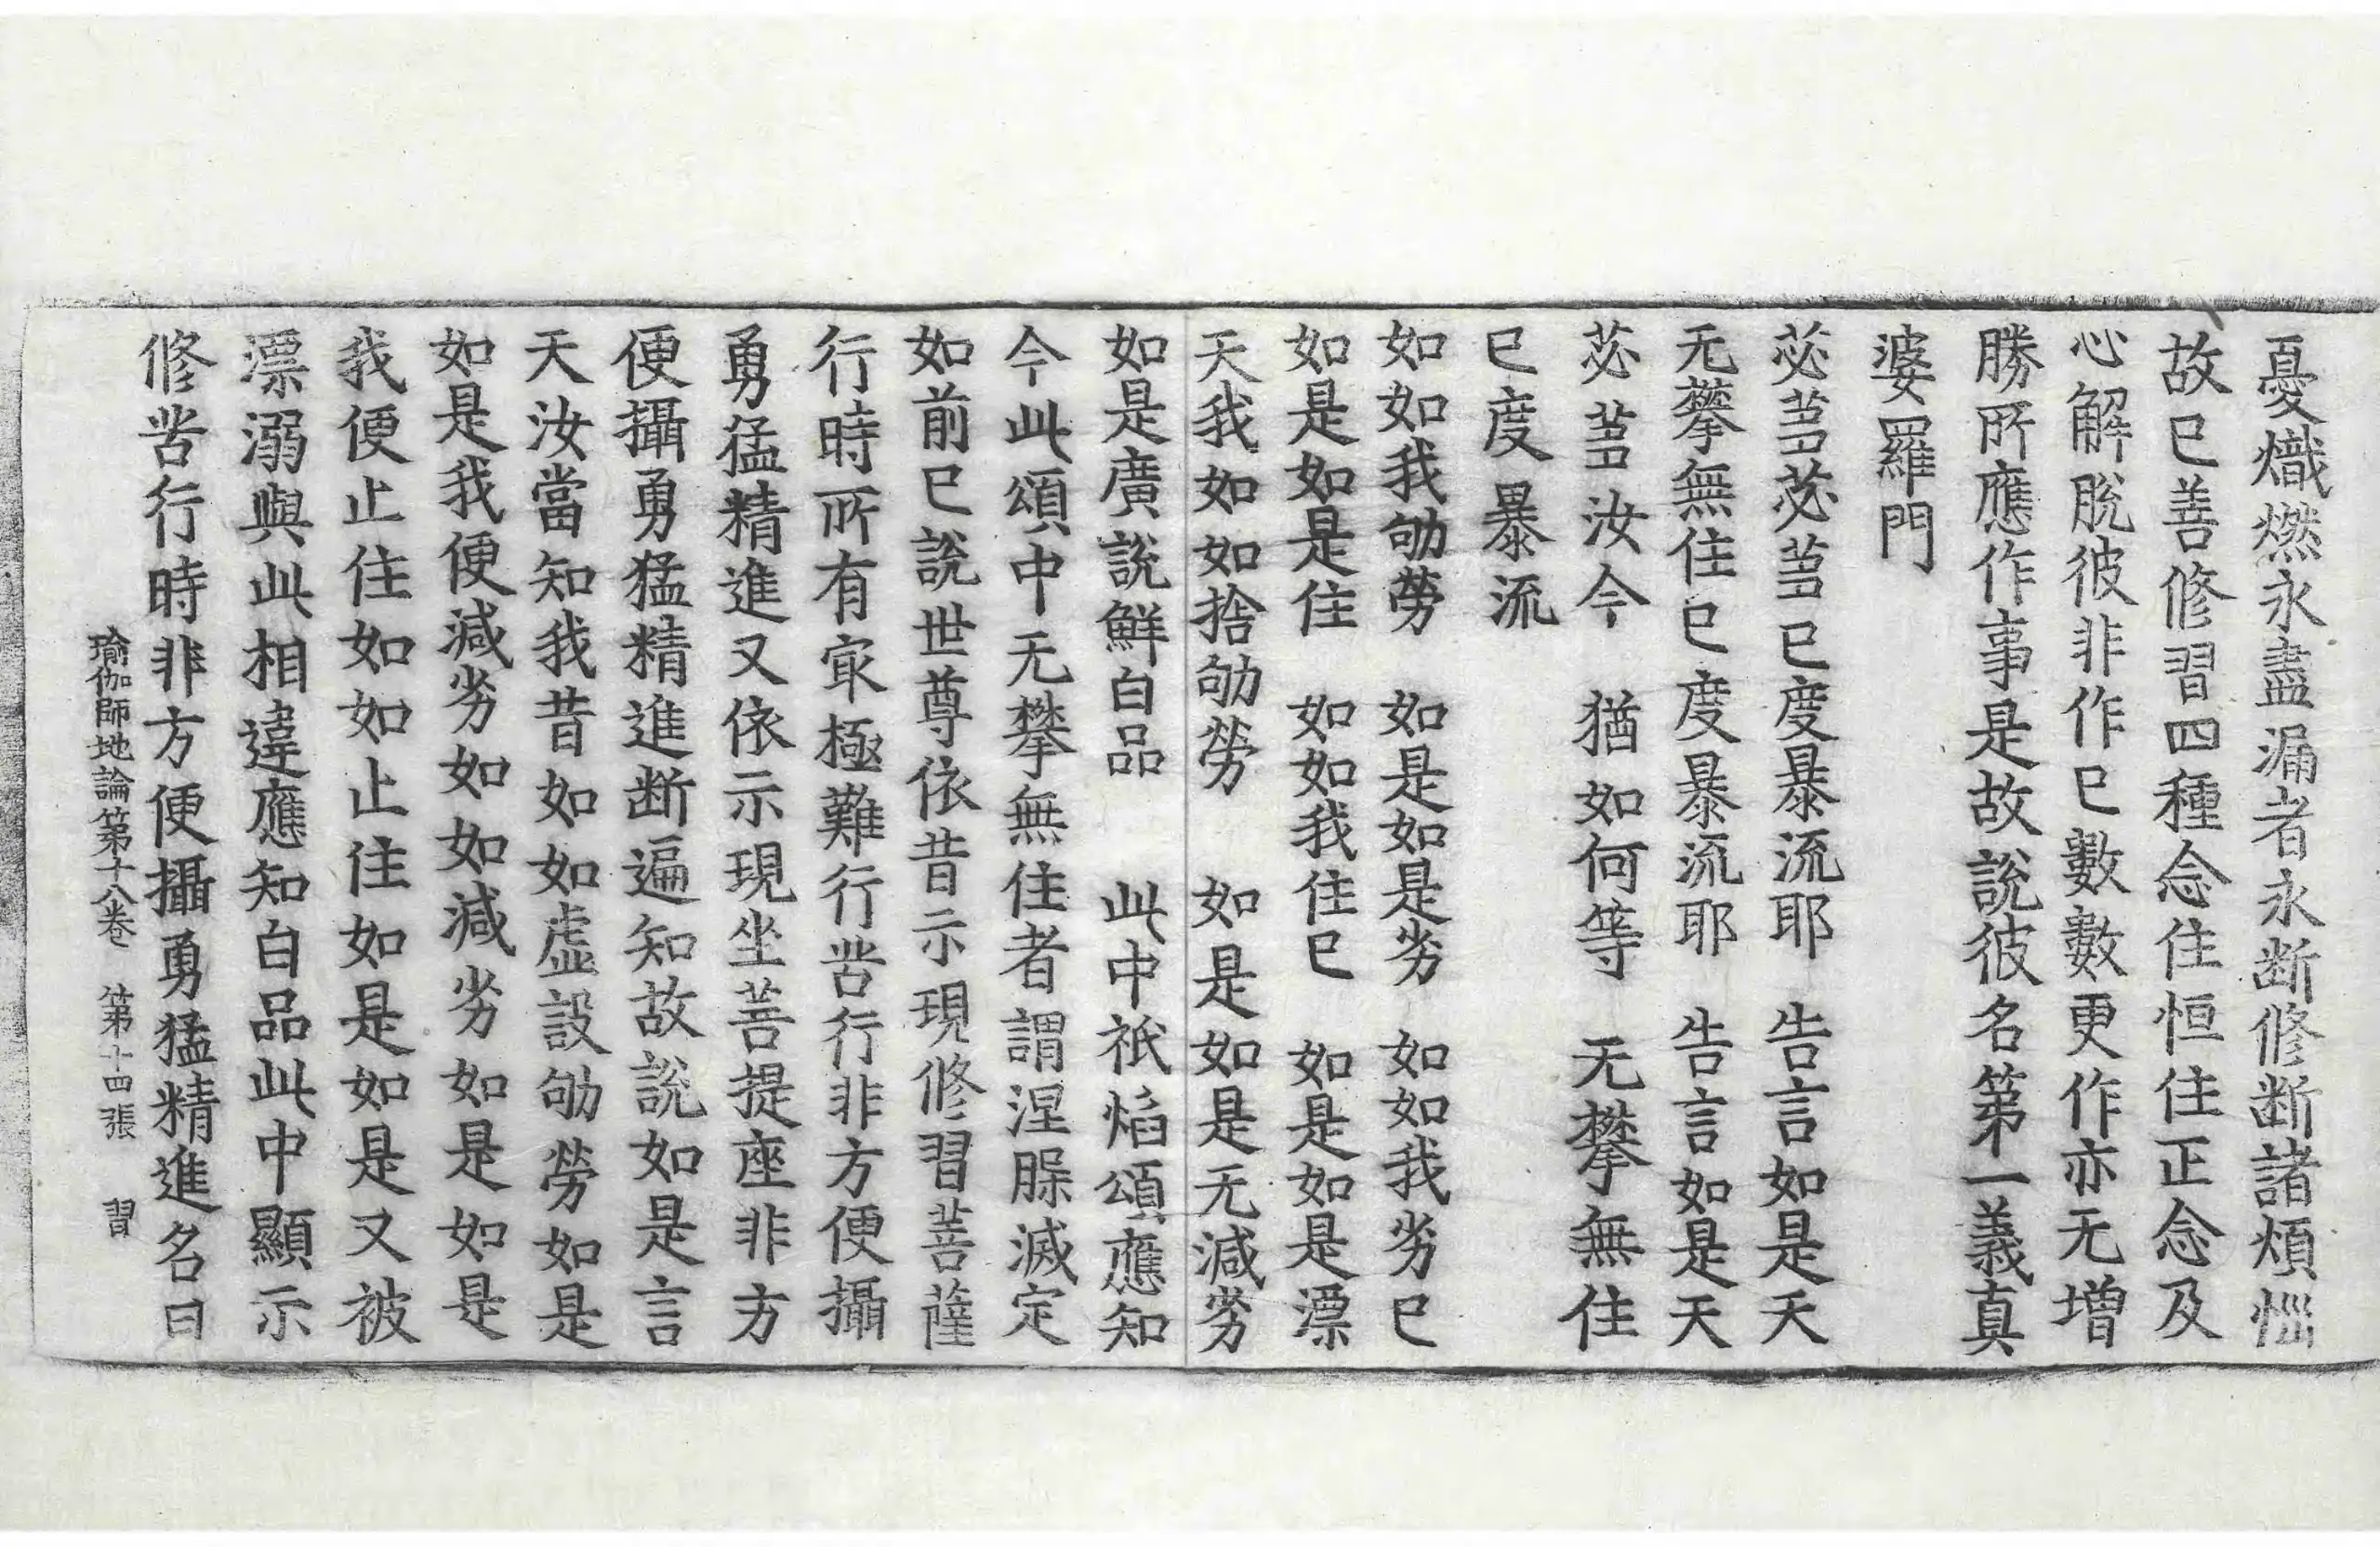 憂熾燃永盡漏者永断修断諸煩惱
故已善修習四種念住恒住正念及
心解脫彼非作已數數更作亦无增
勝所應作事是故說彼名第一義真
婆羅門
苾蒭苾蒭已度暴流耶　告言如是天
无攀無住已度暴流耶　告言如是天
苾蒭汝今　猶如何等　无攀無住
已度暴流
如如我劬勞　如是如是劣　如如我劣已
如是如是住　如如我住已　如是如是漂
天我如如捨劬勞　如是如是无減劣
如是廣說鮮白品　此中祇焰頌應知
今此頌中无攀無住者謂涅槃滅定
如前已說世尊依昔示現修習菩薩
行時所有㝡極難行苦行非方便攝
勇猛精進又依示現坐菩提座非方
便攝勇猛精進断遍知故說如是言
天汝當知我昔如如虛設劬勞如是
如是我便減劣如如減劣如是如是
我便止住如如止住如是如是又被
漂溺與此相違應知白品此中顯示
修苦行時非方便攝勇猛精進名曰
瑜伽師地論第十八卷　第十四張　習